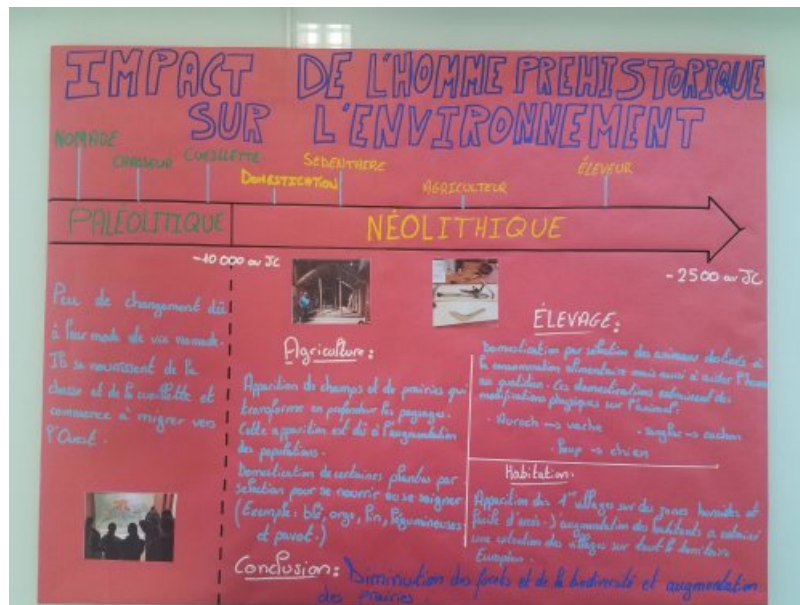 IMPACT DE L'HOMME PREHISTORIQUE
SUR L'ENVIRONNEMENT
NOMADE
CHASSEUR
CUEILLETTE
DOMESTICATION
SEDENTAIRE
AGRICULTEUR
ÉLEVEUR
PALÉOLITIQUE
NÉOLITHIQUE
-10 000 av JC
-2500 av JC
Peu de changement dû
à leur mode de vie nomade.
Ils se nourrissent de la
chasse et de la cueillette et
commence à migrer vers
l'Ouest.
Agriculture:
Apparition de champs et de prairies qui
transforme en profondeur les paysages.
Cette apparition est dû à l'augmentation
des populations.
Domestication de certaines plantes par
sélection pour se nourrir ou se soigner
(Exemple: blé, orge, lin, légumineuses
et pavot.)
ÉLEVAGE:
Domestication par sélection des animaux destinés à
la consommation alimentaire mais aussi à aider l'homme
au quotidien. Ces domestications entraînent des
modifications physiques sur l'animal:
- Auroch → vache
- sanglier → cochon
- loup → chien
Habitation:
Apparition des 1ers villages sur des zones humides et
facile d'accès augmentation des habitants a entraîné
une extension des villages sur tout le territoire
Européen.
Conclusion: Diminution des forêts et de la biodiversité et augmentation
des prairies.